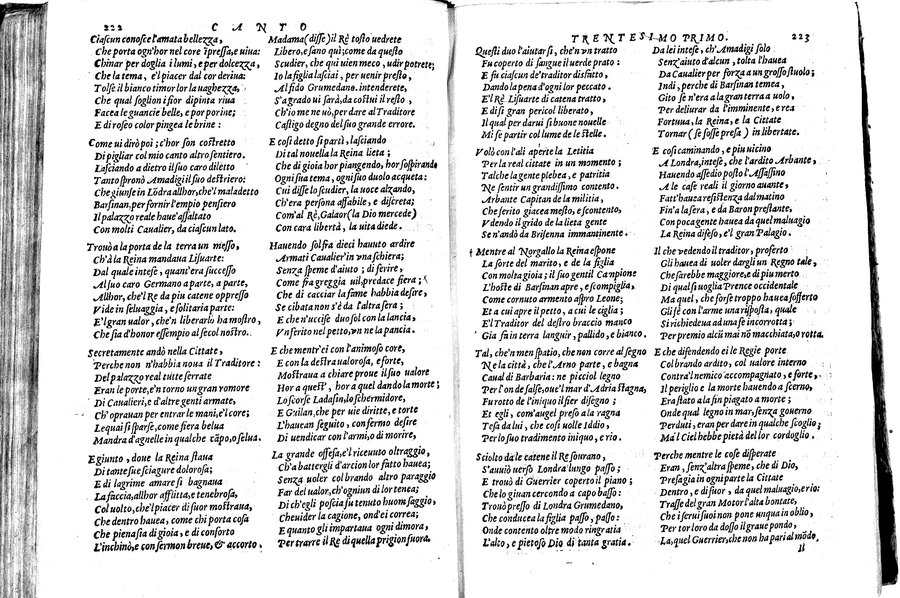 222 CANTO
Ciascun conosce l'amata bellezza,
Che porta ogn'hor nel core ĩpressa, e uiua:
Chinar per doglia i lumi, e per dolcezza,
Che la tema, e'l piacer dal cor deriua:
Tolse il bianco timor lor la uaghezza,
Che qual soglion i fior dipinta riua
Facea le guancie belle, e porporine;
E di roseo color pingea le brine:
Come ui dirò poi; c'hor son costretto
Di pigliar col mio canto altro sentiero.
Lasciando a dietro il suo caro diletto
Tanto spronò Amadigi il suo destriero:
Che giunse in Lõdra allhor, che'l maladetto
Barsinan, per fornir l'empio pensiero
Il palazzo reale haue' assaltato
Con molti Caualier, da ciascun lato.
Trouò a la porta de la terra un messo,
Ch'à la Reina mandaua Lisuarte:
Dal quale intese, quant'era successo
Al suo caro Germano a parte, a parte,
Allhor, che'l Rè da piu catene oppresso
Vide in seluaggia, e solitaria parte:
E'l gran ualor, che'n liberarlo ha mostro,
Che sia d'honor essempio al secol nostro.
Secretamente andò nella Cittate,
Perche non n'habbia noua il Traditore:
Del palazzo real tutte serrate
Eran le porte, e'n torno un gran romore
Di Caualieri, e d'altre genti armate,
Ch'oprauan per entrar le mani, e'l core;
Lequai si sparse, come fiera belua
Mandra d'agnelle in qualche cãpo, o selua.
E giunto, doue la Reina staua
Di tante sue sciagure dolorosa;
E di lagrime amare si bagnaua
La faccia, allhor afflitta, e tenebrosa,
Col uolto, che'l piacer di fuor mostraua,
Che dentro hauea, come chi porta cosa
Che piena sia di gioia, e di conforto
L'inchinò, e con sermon breue, & accorto.
Madama (disse) il Rè tosto uedrete
Libero, e sano qui; come da questo
Scudier, che qui uien meco, udir potrete;
Io la figlia lasciai, per uenir presto,
Al fido Grumedano. intenderete,
S'a grado ui sarà, da costui il resto,
Ch'io me ne uò, per dare al Traditore
Castigo degno del suo grande errore.
E cosi detto si partì, lasciando
Di tal nouella la Reina lieta;
Che di gioia hor piangendo, hor sospirando
Ogni sua tema, ogni suo duolo acqueta:
Cui disse lo scudier, la uoce alzando,
Ch'era persona affabile, e discreta;
Com'al Rè, Galaor (la Dio mercede)
Con cara libertà, la uita diede.
Hauendo sol fra dieci hauuto ardire
Armati Caualier'in vna schiera;
Senza speme d'aiuto; di ferire,
Come fra greggia uil, predace fiera;
Che di cacciar la fame habbia desire,
Se cibata non s'è da l'altra sera;
E che n'uccise duo sol con la lancia,
Vn ferito nel petto, vn ne la pancia.
E che mentr'ei con l'animoso core,
E con la destra ualorosa, e forte,
Mostraua a chiare proue il suo ualore
Hor a quest', hor a quel dando la morte;
Lo scorse Ladasin, lo schermidore,
E Guilan, che per uie diritte, e torte
L'hauean seguito, con fermo desire
Di uendicar con l'armi, o di morire,
La grande offesa, e'l riceuuto oltraggio,
Ch'a battergli d'arcion lor fatto hauea;
Senza uoler colbrando altro paraggio
Far del ualor, ch'ogniun di lor tenea;
Di ch'egli poscia fu tenuto huom saggio,
Che uider la cagione, ond'ei correa;
E quanto gli impartaua ogni dimora,
Per trarre il Rè di quella prigion fuora.
TRENTESIMO PRIMO. 223
Questi duo l'aiutar si, che'n vn tratto
Fu coperto di sangue il uerde prato:
E fu ciascun de' traditor disfatto,
Dando la pena d'ogni lor peccato.
E'l Rè Lisuarte di catena tratto,
E di si gran pericol liberato,
Il qual per darui si buone nouelle
Mi se partir col lume de le stelle.
Volò con l'ali aperte la Letitia
Per la real cittate in un momento;
Tal che la gente plebea, e patritia
Ne sentir un grandissimo contento.
Arbante Capitan de la militia,
Che ferito giacea mesto, e scontento,
Vdendo il grido de la lieta gente
Se n'andò da Brisenna immantinente.
† Mentre al Norgallo la Reina espone
La sorte del marito, e de la figlia
Con molta gioia; il suo gentil Cãpione
L'hoste di Barsinan apre, e scompiglia,
Come cornuto armento aspro Leone;
Et a cui apre il petto, a cui le ciglia;
E'l Traditor del destro braccio manco
Già fa in terra languir, pallido, e bianco.
Tal, che'n men spatio, che non corre al segno
Ne la città, che l'Arno parte, e bagna
Caual di Barbaria: ne picciol legno
Per l'on de salse, oue'l mar d'Adria stagna,
Fu rotto de l'iniquo il fier disegno;
Et egli, com'augel preso a la ragna
Tesa da lui, che cosi uolle Iddio,
Per lo suo tradimento iniquo, e rio.
Sciolto da le catene il Re sourano,
S'auuiò uerso Londra lungo passo;
E trouò di Guerrier coperto il piano;
Che lo giuan cercando a capo basso:
Trouò presso di Londra Grumedano,
Che conducea la figlia passo, passo:
Onde contento oltre modo ringratia
L'alto, e pietoso Dio di tanta gratia.
Da lei intese, ch'Amadigi solo
Senz'aiuto d'alcun, tolta l'hauea
Da Caualier per forza a un grosso stuolo;
Indi, perche di Barsinan temea,
Gito se n'era a la gran terra a uolo,
Per deliurar da l'imminente, e rea
Fortuna, la Reina, e la Cittate
Tornar (se fosse presa) in libertate.
E cosi caminando, e piu uicino
A Londra, intese, che l'ardito Arbante,
Hauendo assedio posto l'Assassino
A le case reali il giorno auante,
Fatt'hauza resistenza dal matino
Fin'a la sera, e da Baron prestante,
Con poca gente hauea da quel maluagio
La Reina difeso, e'l gran Palagio.
Il che vedendo il traditor, proferto
Gli hauea di uoler dargli un Regno tale,
Che sarebbe maggiore, e di piu merto
Di qual si uoglia Prence occidentale
Ma quel, che forse troppo hauea sofferto
Gli fè con l'arme una risposta, quale
Si richiedeua ad una fe incorrotta;
Per premio alcũ mai nõ macchiata, o rotta.
E che difendendo ei le Regie porte
Colbrando ardito, col ualore interno
Contra'l nemico accompagnato, e forte,
Il periglio e la morte hauendo a scerno,
Era stato a la fin piagato a morte;
Onde qual legno in mar, senza gouerno
Perduti, eran per dare in qualche scoglio;
Ma'l Ciel hebbe pietà del lor cordoglio.
Perche mentre le cose disperate
Eran, senz'altra speme, che di Dio,
Presa già in ogni parte la Cittate
Dentro, e di fuor, da quel maluagio, e rio:
Trasse del gran Motor l'alta bontate,
Che i serui suoi non pone unqua in oblio,
Per tor loro da dosso il graue pondo,
La, quel Guerrier, che non ha pari al mõdo.
Il